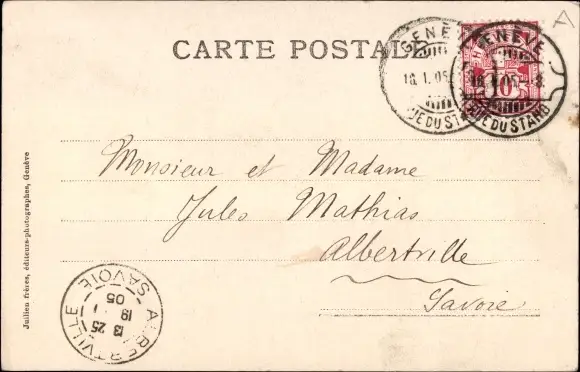 CARTE POSTALE
GENÈVE
18.I.05
RUE DU STAND
GENÈVE
18.I.05.-8
RUE DU STAND
10
Monsieur et Madame
Jules Mathias
Albertville
Savoie
Jullien frères, éditeurs-photographes, Genève
ALBERTVILLE
13 25
19 1
05
SAVOIE